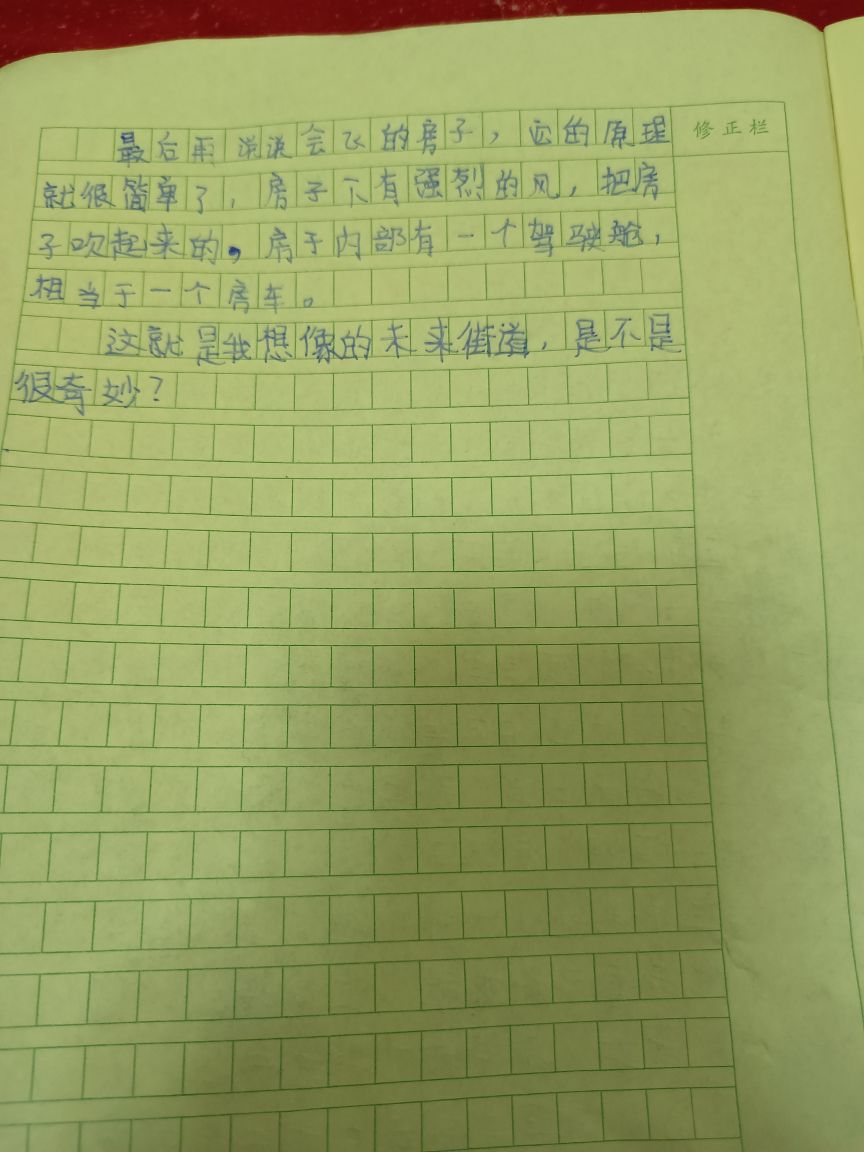 最后再说说会飞的房子，它的原理
修正栏
就很简单了，房子下有强烈的风，把房
子吹起来的，房子内部有一个驾驶舱，
相当于一个房车。
这就是我想像的未来街道，是不是
很奇妙？